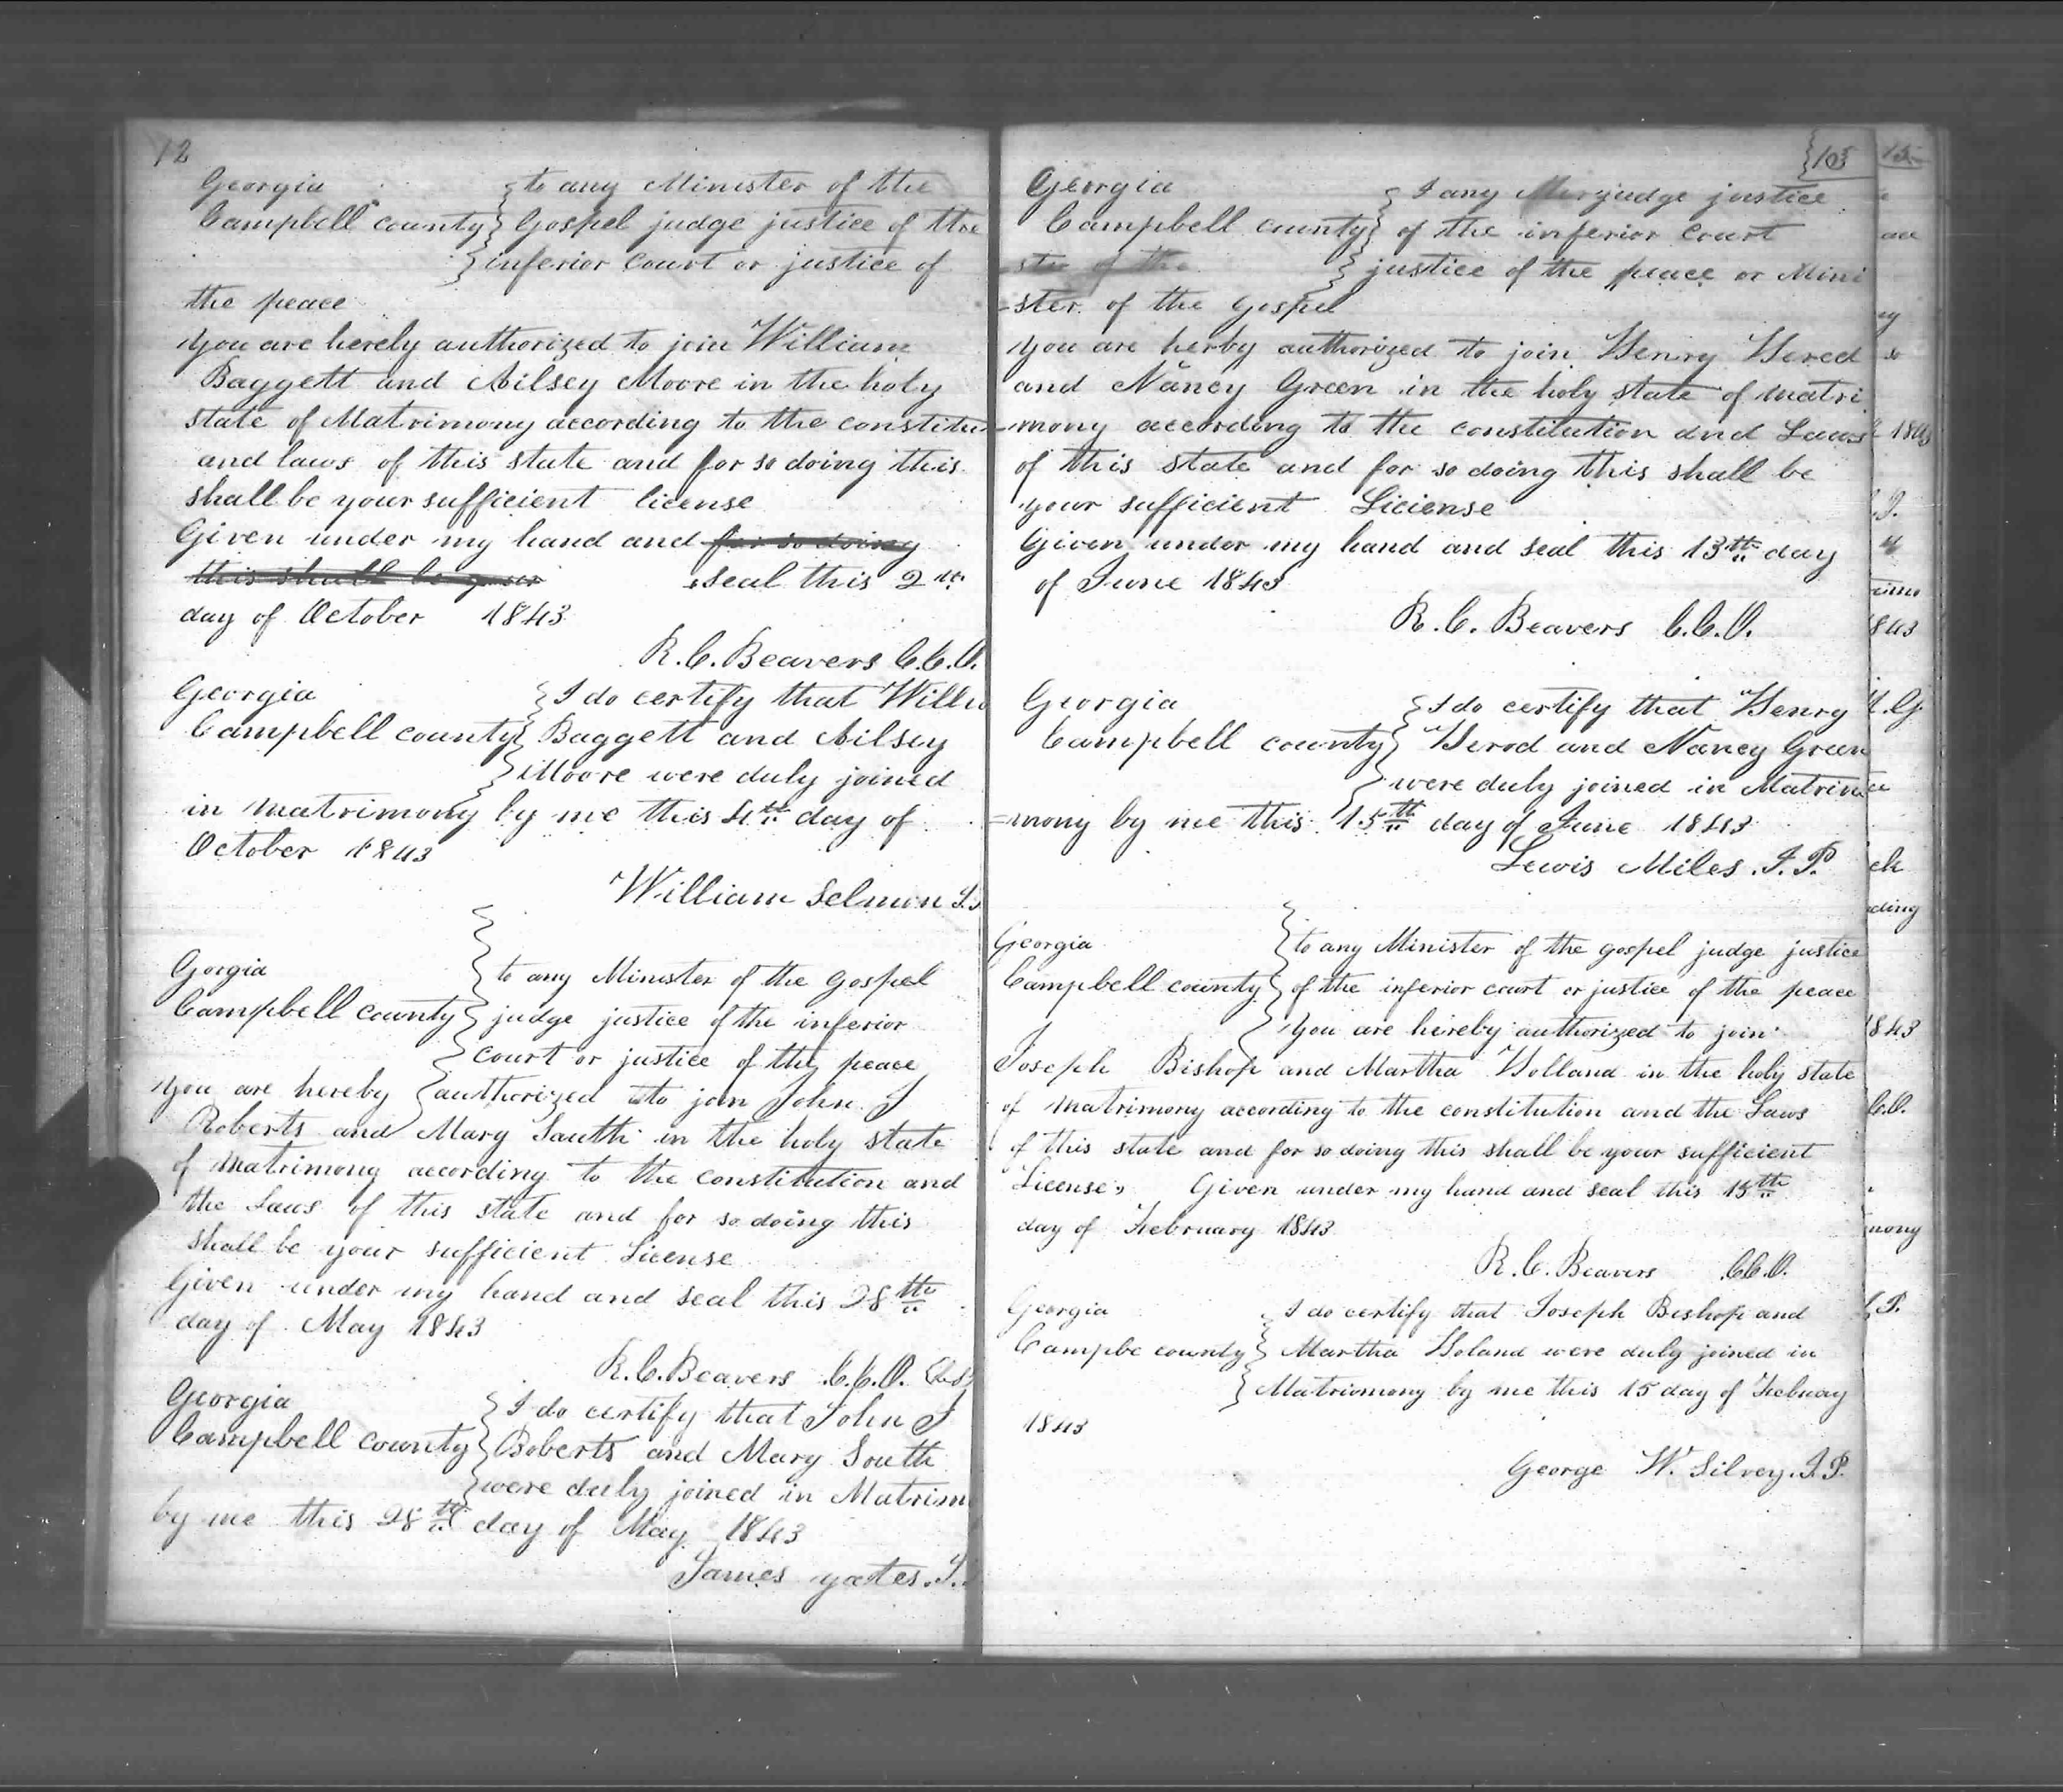 12
Georgia to any Minister of the
Campbell county Gospel judge justice of the
inferior court or justice of
the peace
you are herely authorized to join William
Baggett and Ailsey Moore in the holy
state of Matrimony according to the constitu
and laws of this state and for so doing this
shall be your sufficient license
Given under my hand and for so doing
this shall be your seal this 2nd
day of October 1843
R. C. Beavers C.C.O.
Georgia I do certify that Willi
Campbell county Baggett and Ailsey
Moore were duly joined
in matrimony by me this 4th day of
October 1843
William Selmon J.
Gorgia to any Minister of the gospel
Campbell county judge justice of the inferior
court or justice of the peace
you are hereby authorized to join John J
Roberts and Mary South in the holy state
of matrimony according to the constitution and
the Laws of this state and for so doing this
shall be your sufficient License
Given under my hand and seal this 28th
day of May 1843
R. C. Beavers C.C.O.
Georgia I do certify that John J
Campbell county Roberts and Mary South
were duly joined in Matrim
by me this 28th day of May 1843
James yates. J.
103
Georgia I any judge justice
Campbell county of the inferior court
ster of the justice of the peace or Mini
-ster of the Gospel
you are herby authorized to join Henry Herod
and Nancy Green in the holy state of matri
-mony according to the constitution and Laws
of this state and for so doing this shall be
your sufficient Liciense
Given under my hand and seal this 13th day
of June 1843
R. C. Beavers C.C.O.
Georgia I do certify that Henry
Campbell county Herod and Nancy Green
were duly joined in Matrim
=mony by me this 15th day of June 1843
Lewis Miles. J. P.
Georgia to any Minister of the gospel judge justice
Campbell county of the inferior court or justice of the peace
J you are hereby authorized to join
Joseph Bishop and Martha Holland in the holy state
of matrimony according to the constitution and the Laws
of this state and for so doing this shall be your sufficient
License, Given under my hand and seal this 15th
day of February 1843
R. C. Beavers CC.O.
Georgia I do certify that Joseph Bishop and
Campbe county Martha Holand were duly joined in
Matriomony by me this 15 day of Febuay
1843
George W. Silvey. J. P.
15
ding
1843
C.O.
mony